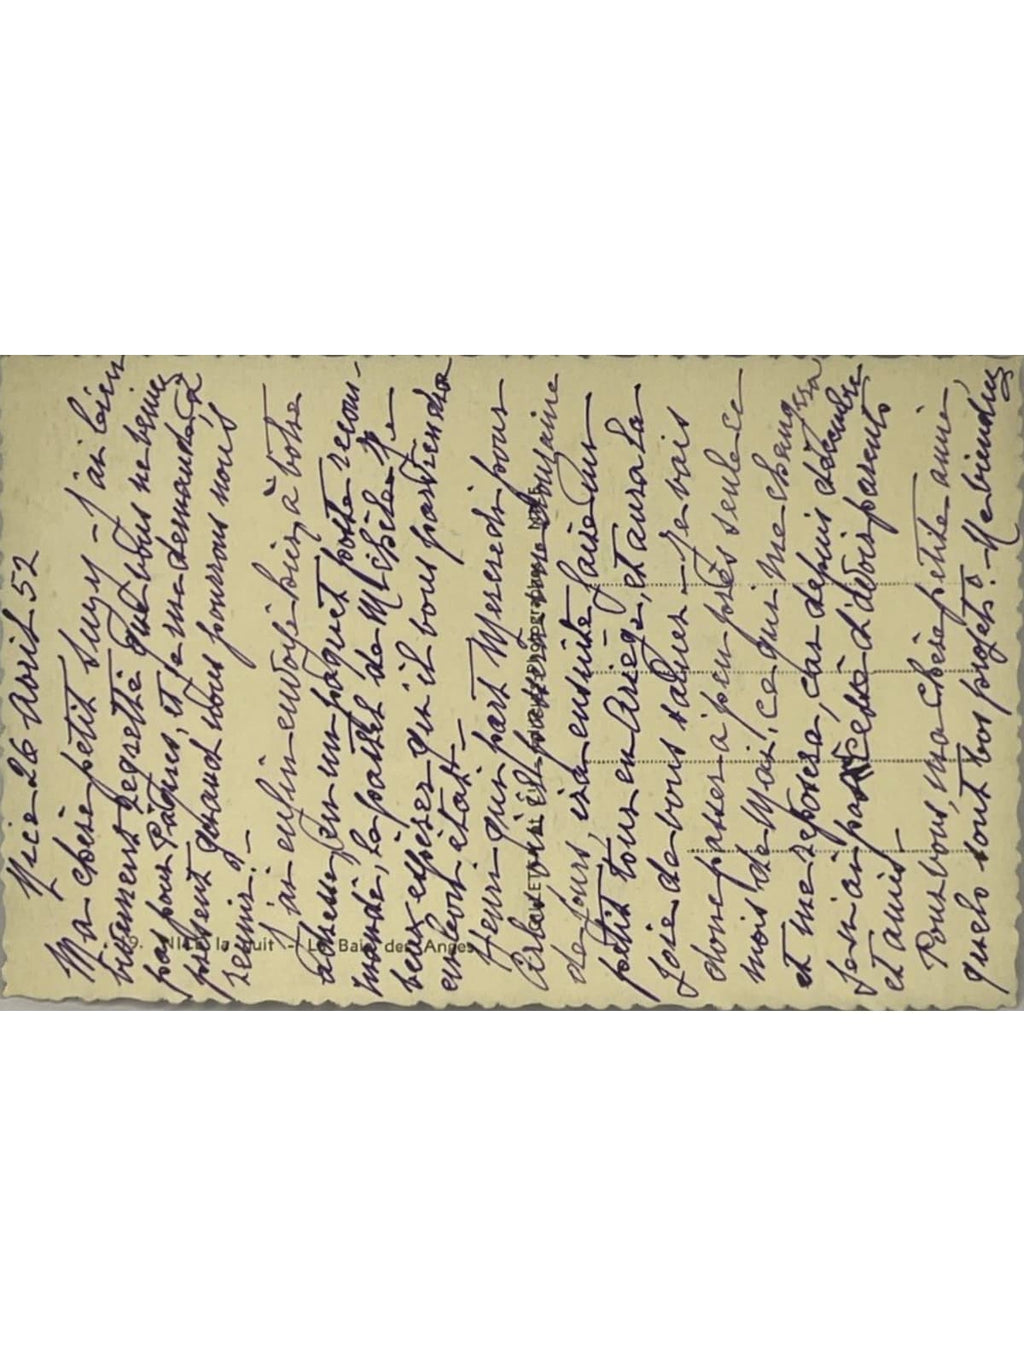 Nice 26 Avril 52
Ma chère petit Suzy - J'ai bien
vivement regretté que vous ne veniez
pas pour Pâques, et je me demande à
présent quand nous pourrons nous
réunir ? -
J'ai enfin envoyé hier, à votre
adresse, en un paquet poste recom-
mandé, le paquet de Michèle. Je
veux espérer qu'il vous parviendra
en bon état. -
Henri qui part Mercredi pour
pour une douzaine
de jours, ira ensuite faire un
petit tour en Ariège, et aura la
joie de vous saluer - Je vais
donc passer à peu près seule ce
mois de Mai, ce qui me changera
et me reposera, car depuis décembre
je n'ai pas cessé d'avoir parents
et amis -
Pour vous, ma chère petite amie,
quels sont vos projets ? - Ne viendrez
NICE, la nuit - La Baie des Anges